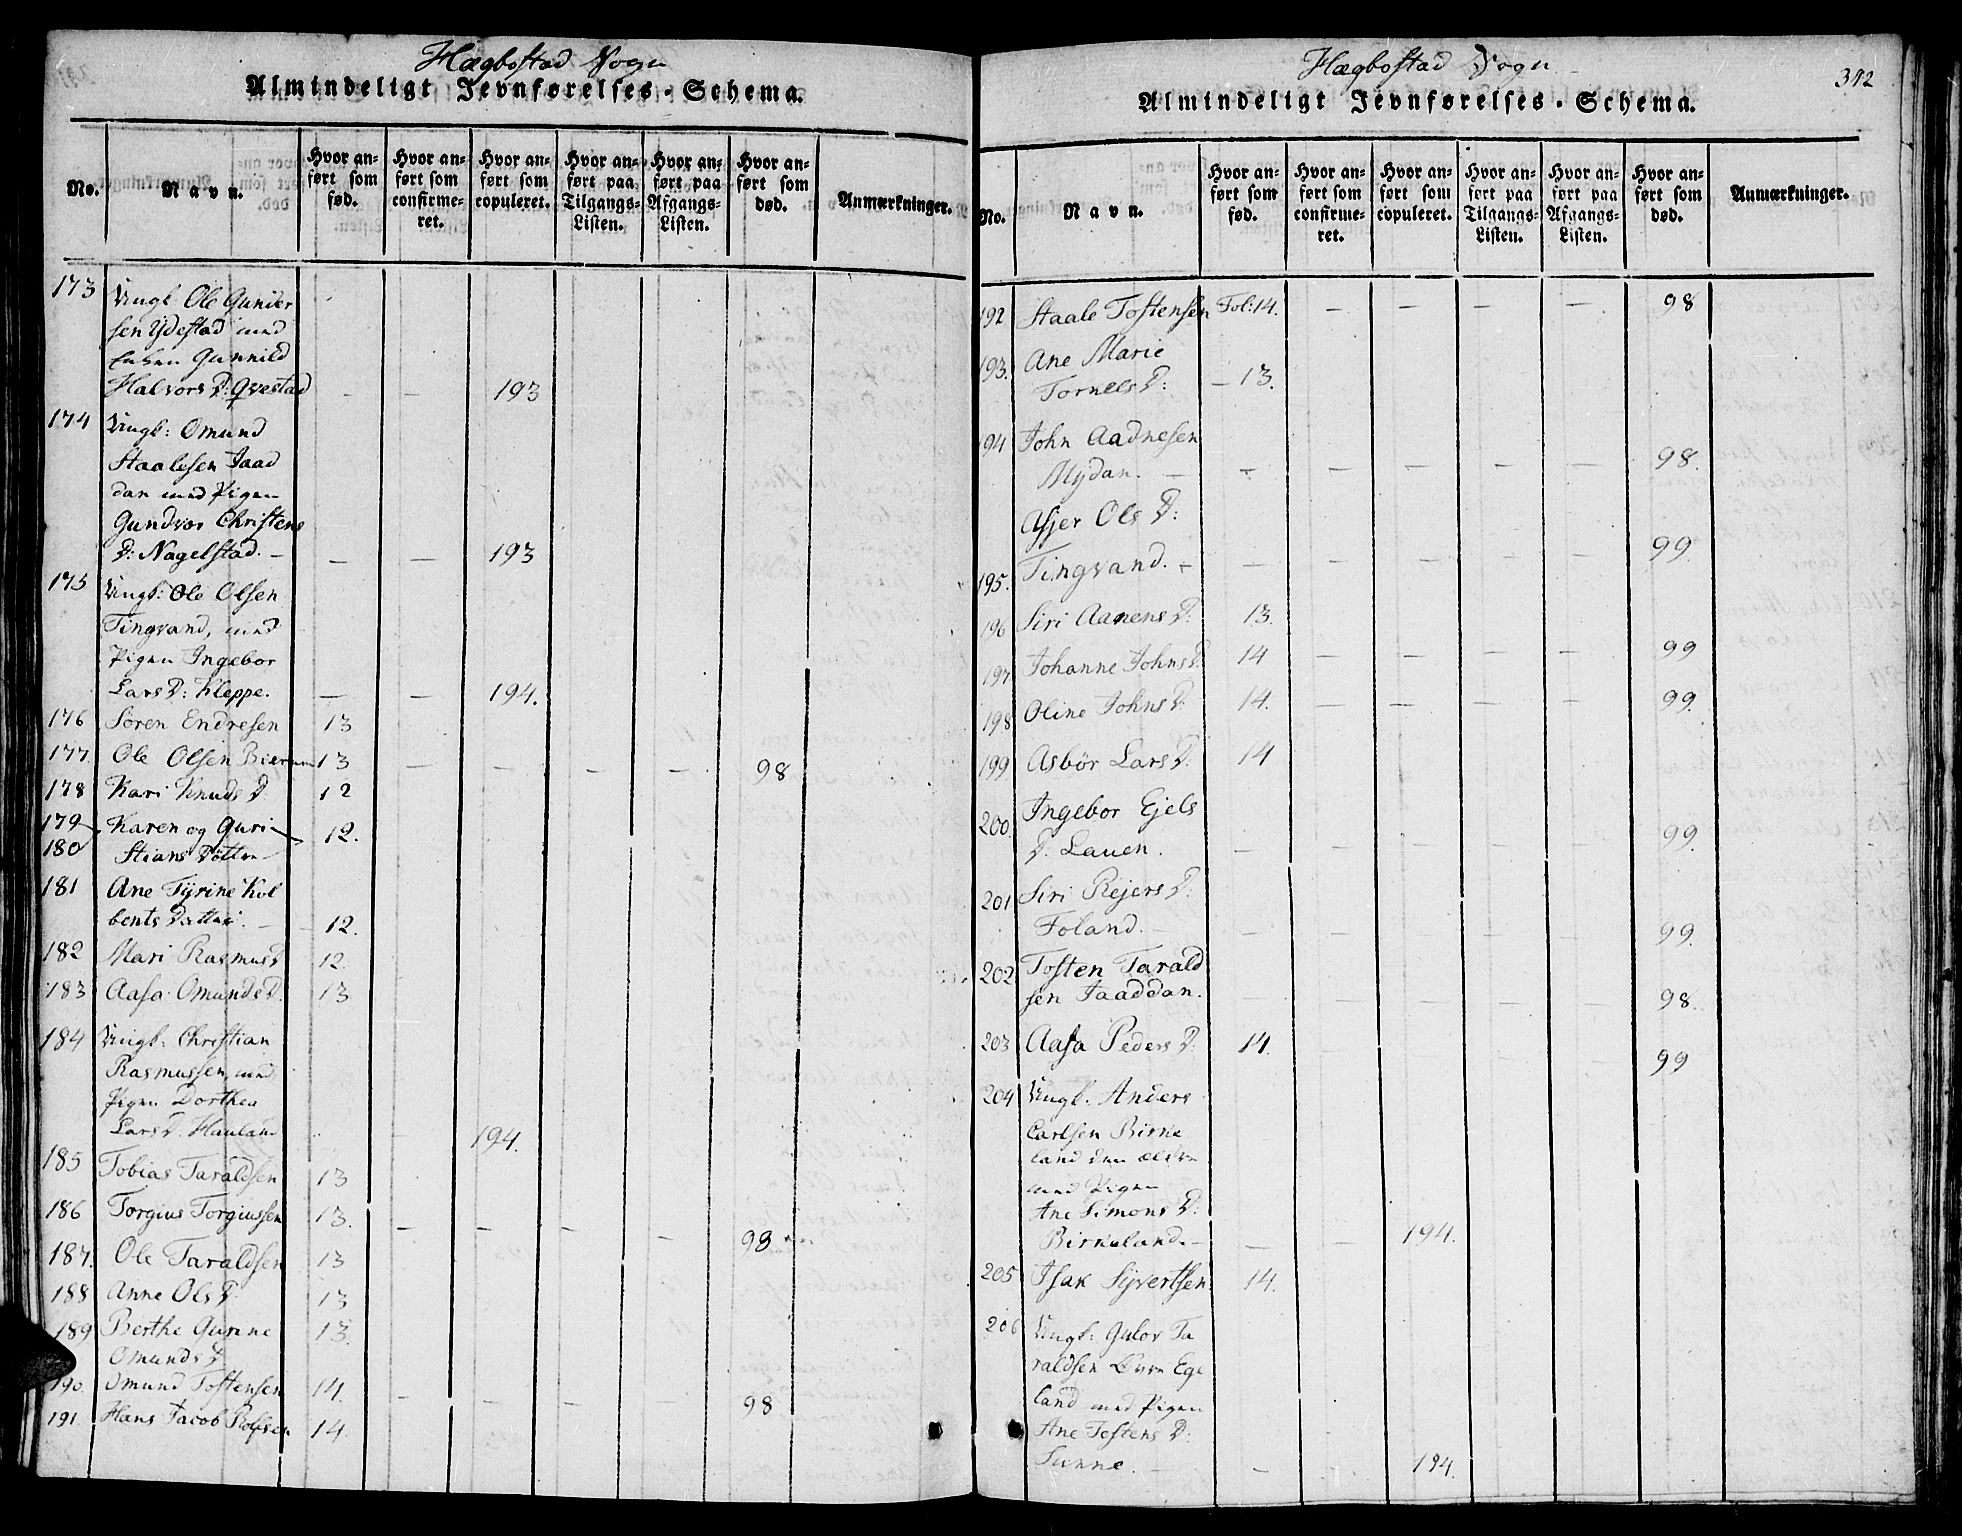 Hægbostad Sogn
Almindeligt Jevnførelses-Schema.
No.
Navn.
Hvor anført som fød.
Hvor anført som confirmeret.
Hvor anført som copuleret.
Hvor anført paa Tilgangs-Listen.
Hvor anført paa Afgangs-Listen.
Hvor anført som død.
Anmærkninger.
173 Ungk Ole Gunder
sen Ydestad med
Enken Gunnild
Halvors D: Qvestad - - 193
174 Ungk: Omund
Staalesen Jaad
dan med Pigen
Gundvor Christens
D: Nagelstad. - - - 193
175 Ungk: Ole Olsen
Tingvand, med
Pigen Ingebor
Lars D: Kleppe. - - 194.
176 Sören Endresen 13
177. Ole Olsen 13 - - - - 98
178 Kari Knuds D 12
179 Karen og Guri
180 Stians Döttre 12.
181 Ane Tÿrine Kol
bents Datter. - 12.
182 Mari Rasmus D 12.
183 Aasa Omunds D. 13
184 Ungk: Christian
Rasmussen, med
Pigen Dorthea
Lars D. Hauland - 194.
185 Tobias Taraldsen 13
186 Torgius Torgiussen 13. - - - - 98
187. Ole Taraldsen 13
188 Anne Ols D 13
189 Berthe Gurine 13.
Omunds D.
190. Omund Tostensen 14. - - - - 98
191. Hans Jacob Rolfsen 14
Hægbostad Sogn
342
Almindeligt Jevnførelses-Schema.
No.
Navn.
Hvor anført som fød.
Hvor anført som confirmeret.
Hvor anført som copuleret.
Hvor anført paa Tilgangs-Listen.
Hvor anført paa Afgangs-Listen.
Hvor anført som død.
Anmærkninger.
192 Staale Tostensen Fol: 14. - - - - 98
193. Ane Marie
Tornels D: - 13.
194 John Aadnesen
Mydan. - - - - - - 98.
Asjer Ols D:
195. Tingvand. - - - - - - 99.
196 Siri Aanens D: 13.
197 Johanne Johns D. 14 - - - - 99
198 Oline Johns D. 14. - - - - 99.
199 Asbör Lars D. 14
200. Ingebor Ejels
D: Lauen. - - - - - 99.
201 Siri Rejers D:
Foland. - - - - - - 99.
202 Tosten Tarald
sen Jaaddan. - - - - - 98.
203 Aasa Peders D: 14. - - - - 99
204 Ungk. Anders
Carlsen Birke
land den ældre
med Pigen
Ane Simons D:
Birkeland. - - - 194.
205 Isak Sÿvertsen 14.
206 Ungk: Gulov Ta
raldsen Øvre Ege
land med Pigen
Ane Tostens D:
Sunne. - - 194.